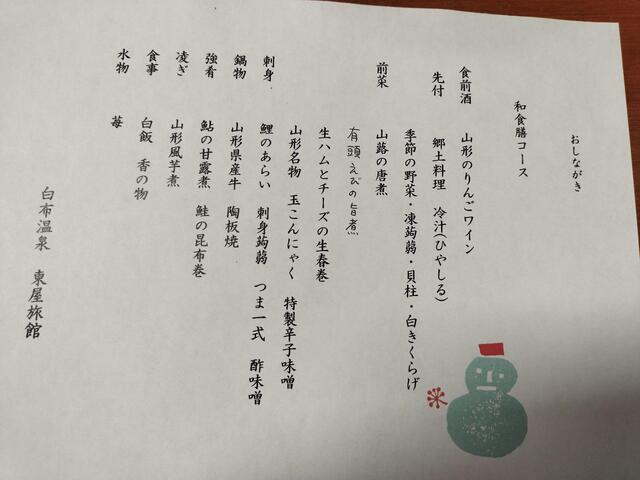 おしながき
和食膳コース
食前酒 山形のりんごワイン
先付 郷土料理 冷汁(ひやしる)
季節の野菜・凍蒟蒻・貝柱・白きくらげ
前菜 山蕗の唐煮
有頭えびの旨煮
生ハムとチーズの生春巻
山形名物 玉こんにゃく 特製辛子味噌
刺身 鯉のあらい 刺身蒟蒻 つま一式 酢味噌
鍋物 山形県産牛 陶板焼
強肴 鮎の甘露煮 鮭の昆布巻
凌ぎ 山形風芋煮
食事 白飯 香の物
水物 苺
白布温泉 東屋旅館